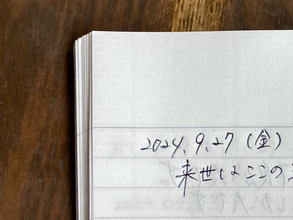 2024.9.27(金)
来世はここの